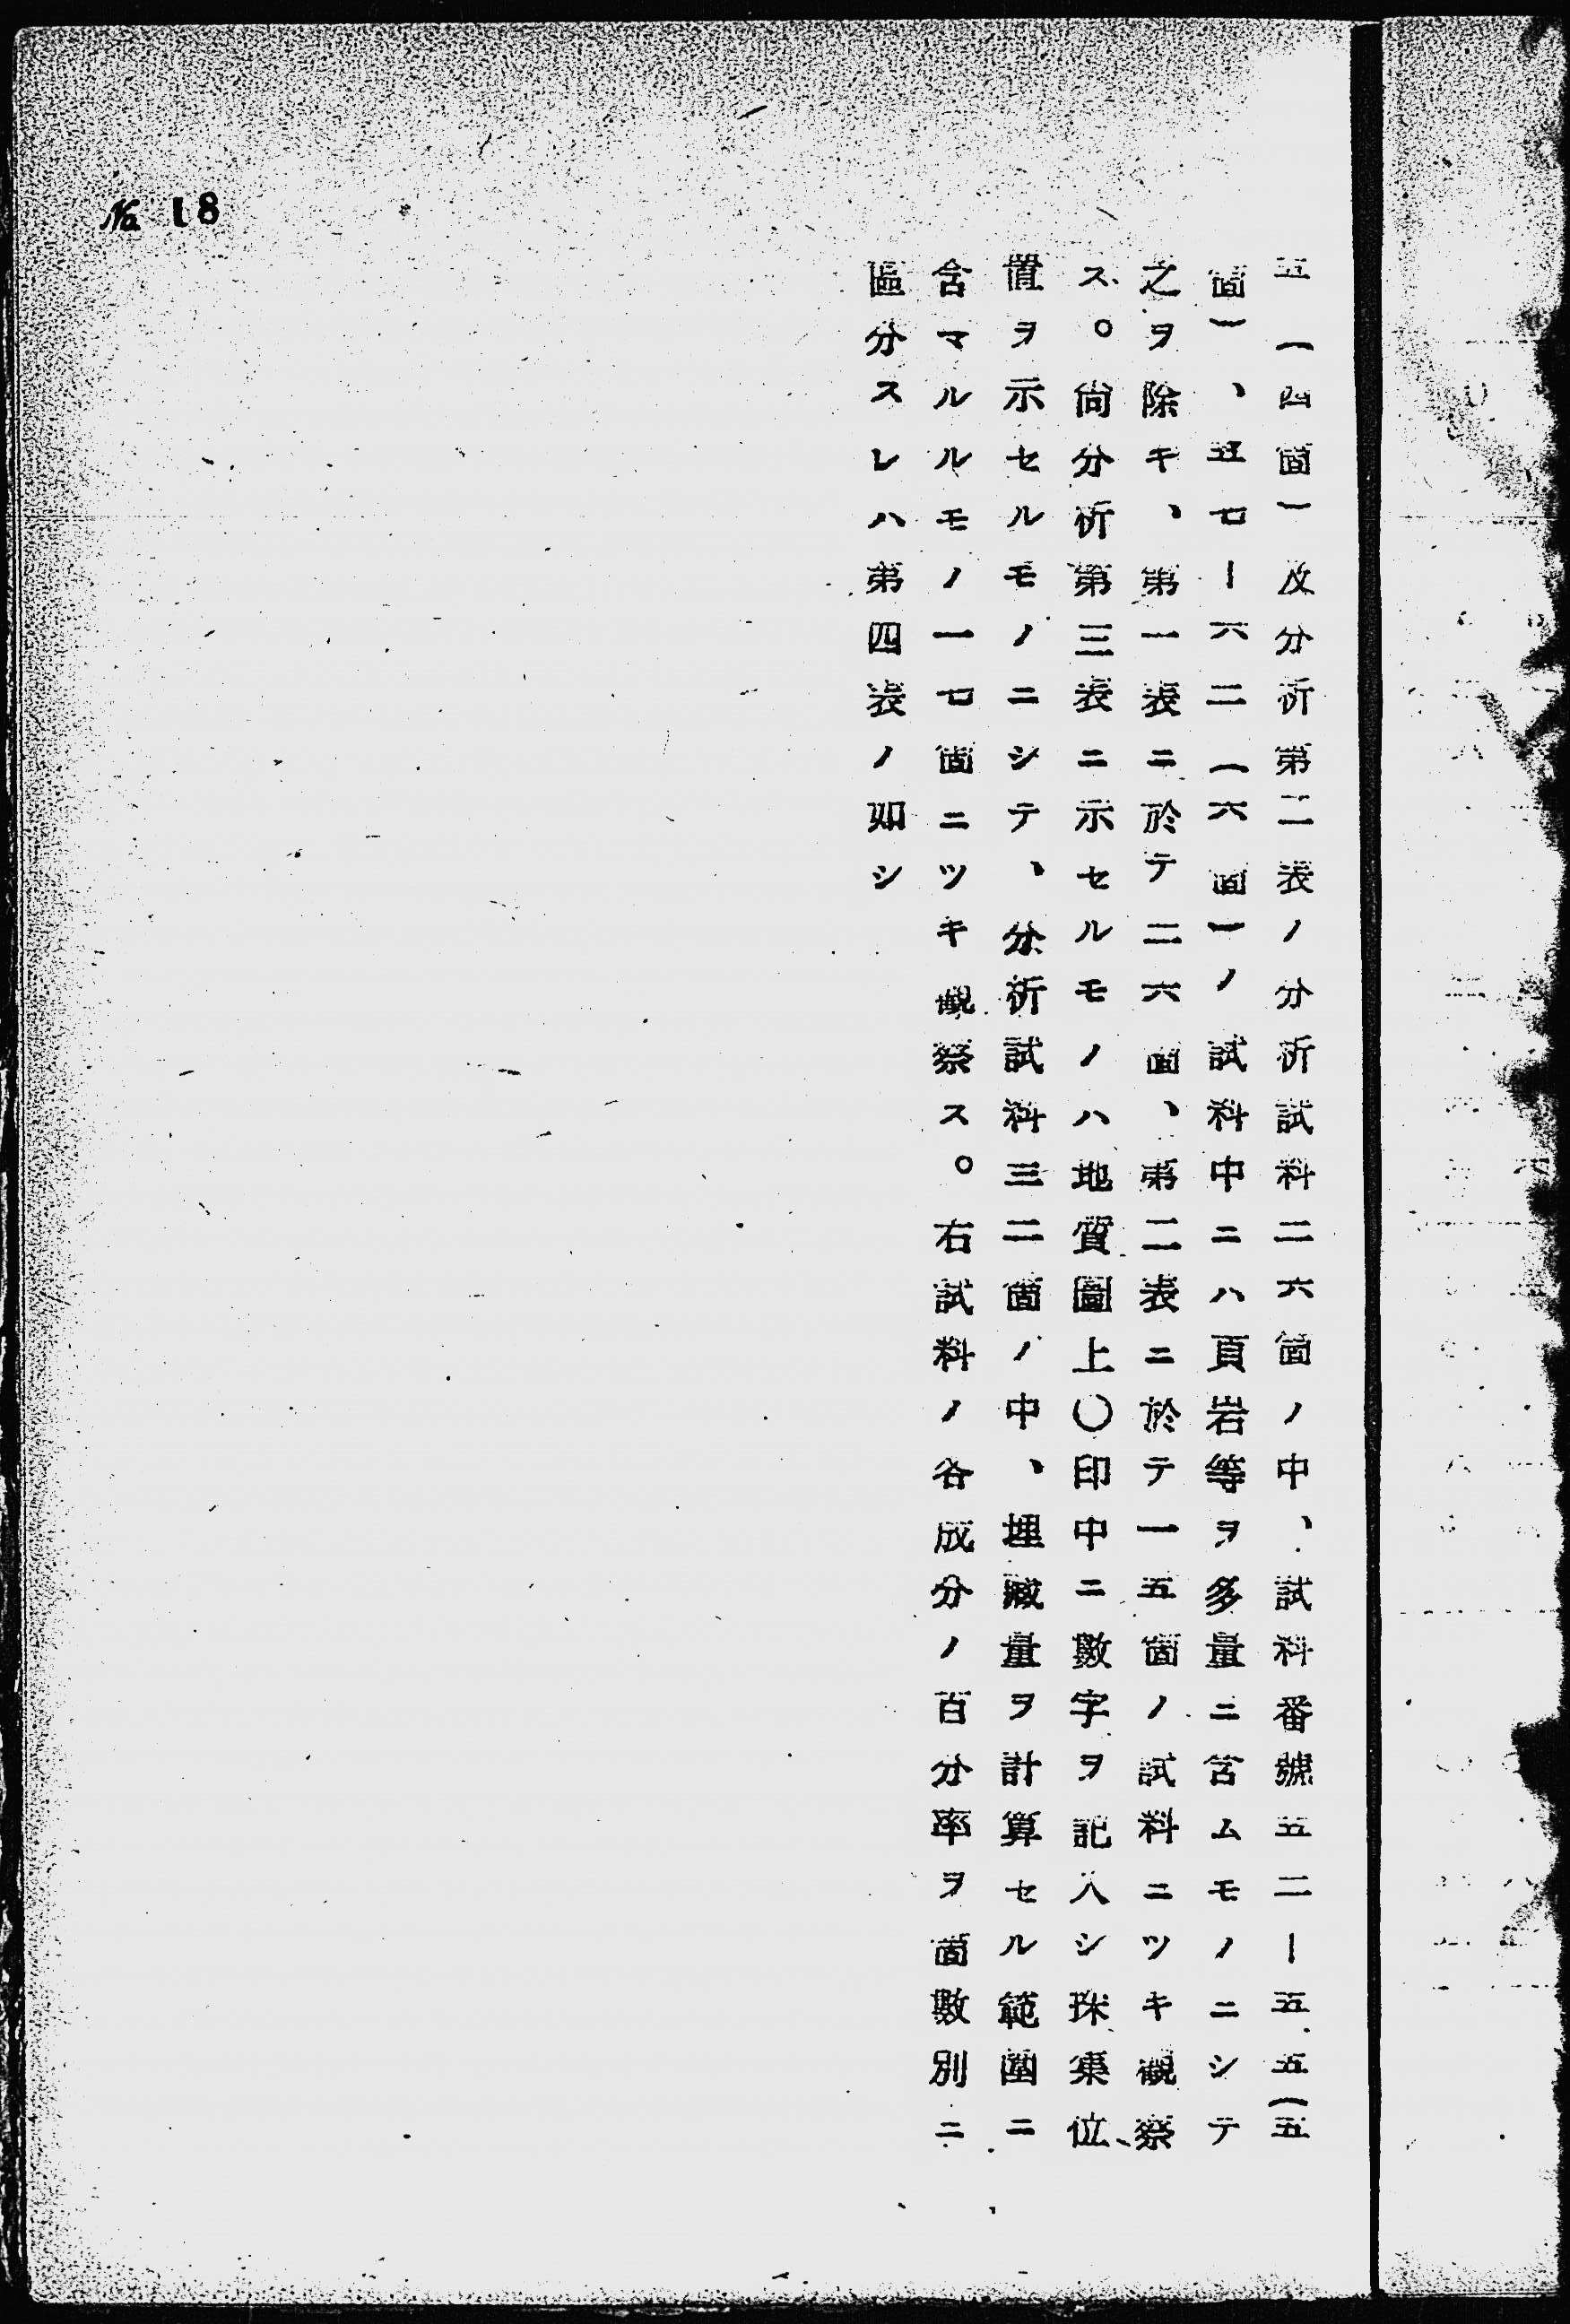 五（四箇）及分析第二表ノ分析試料二六箇ノ中、試料番號五二ー五五（五
箇）、五七ー六二（六箇）ノ試料中ニハ頁岩等ヲ多量ニ含ムモノニシテ
之ヲ除キ、第一表ニ於テ二六箇、第二表ニ於テ一五箇ノ試料ニツキ觀察
ス。尙分析第三表ニ示セルモノハ地質圖上〇印中ニ數字ヲ記入シ採集位
置ヲ示セルモノニシテ、分析試料三二箇ノ中、埋藏量ヲ計算セル範圍ニ
含マルルモノ一七箇ニツキ觀察ス。右試料ノ各成分ノ百分率ヲ箇數別ニ
區分スレハ第四表ノ如シ
№ 18